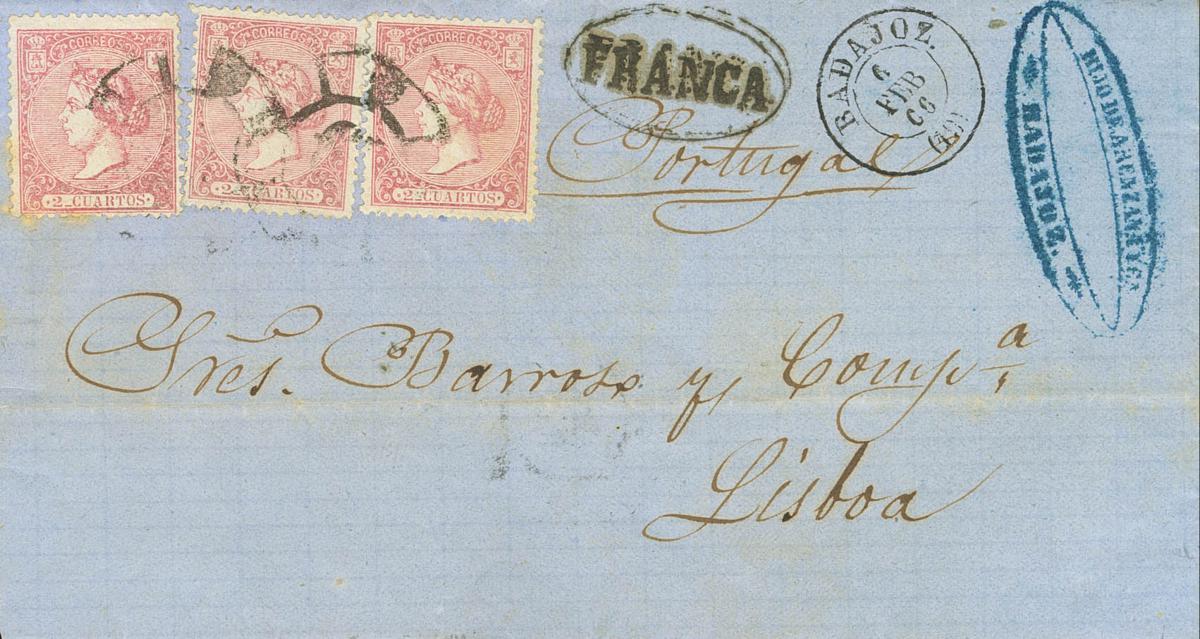 CORREOS
2 CUARTOS
CORREOS
2 CUARTOS
CORREOS
2 CUARTOS
FRANCA
BADAJOZ.
6
FEB
66
Portugal
HIJO DE
BADAJOZ.
Sres. Barros y Comp.a
Lisboa